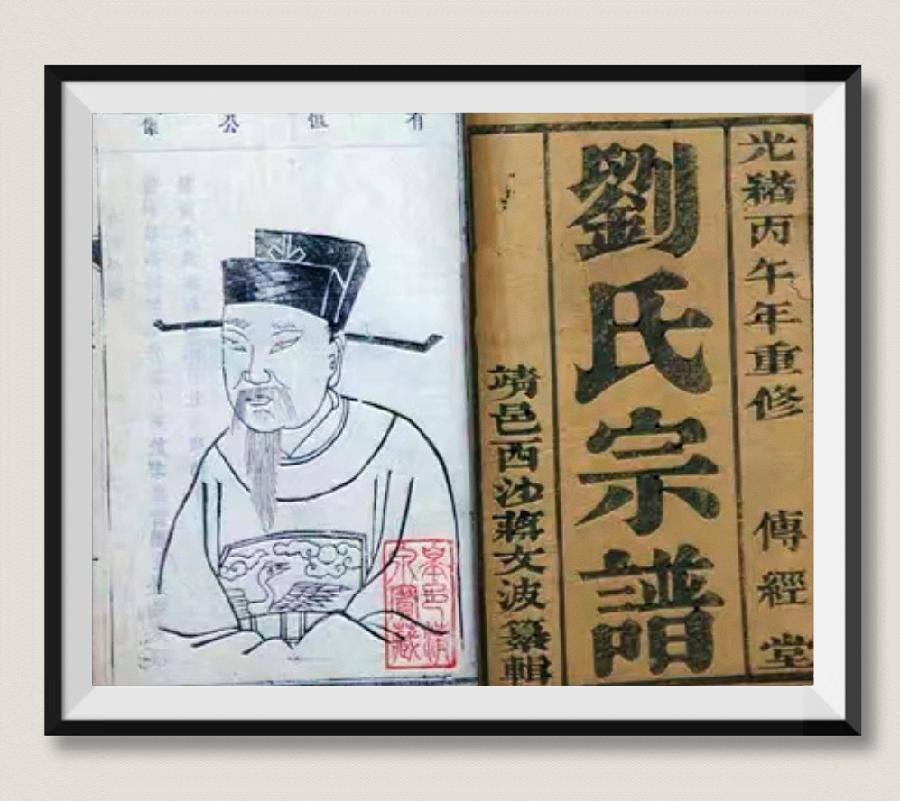 光緒丙午年重修 傳經堂
劉氏宗譜
靖邑西沙蔣文波纂輯
有 公像